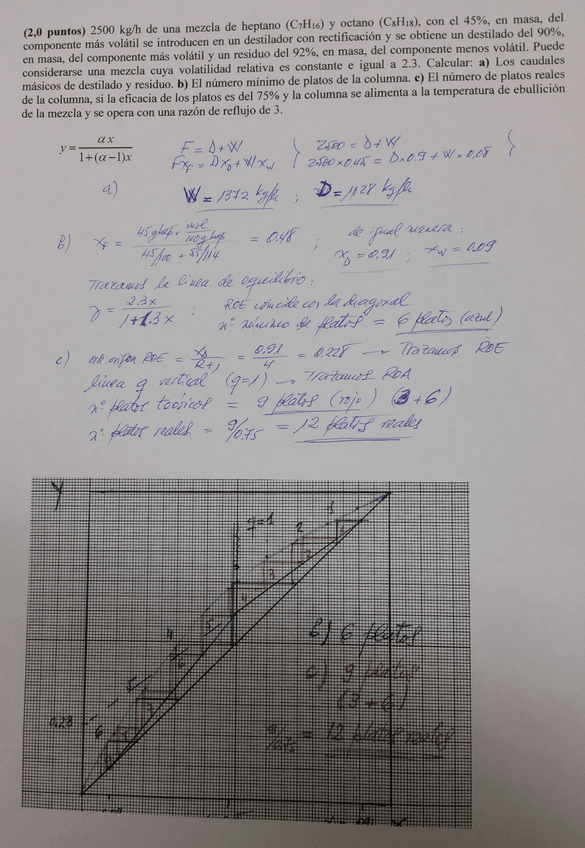 (2,0 puntos) 2500 kg/h de una mezcla de heptano (C7H16) y octano (C8H18), con el 45%, en masa, del
componente más volátil se introducen en un destilador con rectificación y se obtiene un destilado del 90%,
en masa, del componente más volátil y un residuo del 92%, en masa, del componente menos volátil. Puede
considerarse una mezcla cuya volatilidad relativa es constante e igual a 2.3. Calcular: a) Los caudales
másicos de destilado y residuo. b) El número mínimo de platos de la columna. c) El número de platos reales
de la columna, si la eficacia de los platos es del 75% y la columna se alimenta a la temperatura de ebullición
de la mezcla y se opera con una razón de reflujo de 3.
y = αx / 1+(α−1)x
F = D+W } 2500 = D+W }
F xF = D xD + W xW } 2500×0.45 = D×0.9 + W×0.08
a) W = 1372 kg/h ; D = 1128 kg/h
b) xF = / 45/100 + 55/114 = 0.48 ; de igual manera:
xD = 0.91 ; xW = 0.09
Trazamos la linea de equilibrio:
y = 2.3x / 1+1.3x ; ROE coincide con la diagonal
nº mínimo de platos = 6 platos (azul)
c) ord. origen ROE = xD / R+1 = 0.91 / 4 = 0.228 → Trazamos ROE
linea q vertical (q=1) → Trazamos ROA
nº platos teóricos = 9 platos (rojo) (3+6)
nº platos reales = 9/0.75 = 12 platos reales
Y
q=1
1
2
1
2
3
4
5
4
6
5
7
0.23
6
b) 6 platos
c) 9 platos
(3+6)
9/0.75 = 12 platos reales